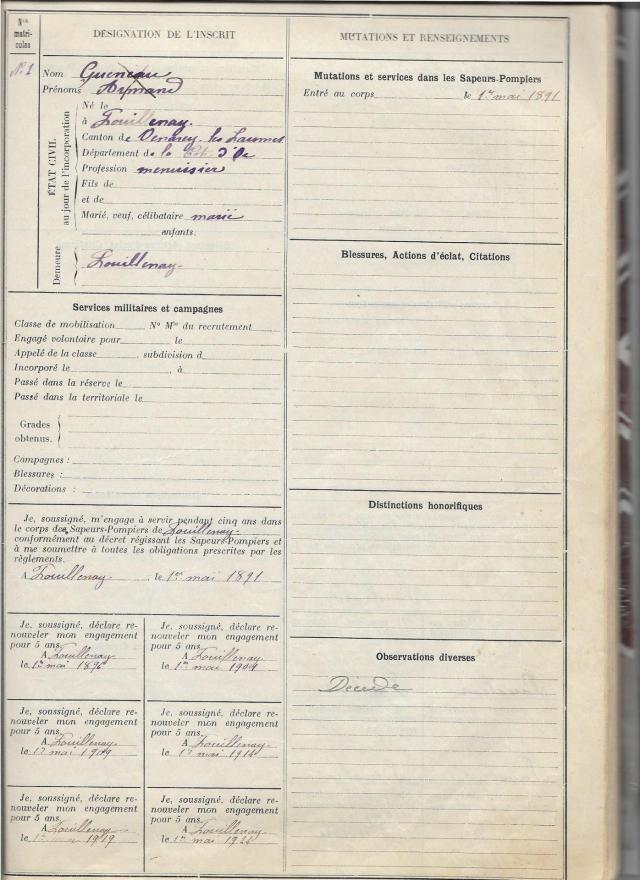 Nos
matri-
cules
DÉSIGNATION DE L'INSCRIT
No 1
Nom Gueneau
Prénoms Armand
ÉTAT CIVIL
au jour de l'incorporation
Né le
à Pouillenay.
Canton de Venarey-les Laumes
Département de la Côte d'Or
Profession menuisier
Fils de
et de
Marié, veuf, célibataire marié
enfants.
Demeure
Pouillenay
Services militaires et campagnes
Classe de mobilisation No Mle du recrutement
Engagé volontaire pour le
Appelé de la classe , subdivision d
Incorporé le , à
Passé dans la réserve le
Passé dans la territoriale le
Grades
obtenus.
Campagnes :
Blessures :
Décorations :
Je, soussigné, m'engage à servir pendant cinq ans dans
le corps des Sapeurs-Pompiers de Pouillenay
conformément au décret régissant les Sapeurs-Pompiers et
à me soumettre à toutes les obligations prescrites par les
règlements.
A Pouillenay , le 1er mai 1891
Je, soussigné, déclare re-
nouveler mon engagement
pour 5 ans.
A Pouillenay
le 1er mai 1896
Je, soussigné, déclare re-
nouveler mon engagement
pour 5 ans.
A Pouillenay
le 1er mai 1904
Je, soussigné, déclare re-
nouveler mon engagement
pour 5 ans.
A Pouillenay
le 1er mai 1909
Je, soussigné, déclare re-
nouveler mon engagement
pour 5 ans.
A Pouillenay
le 1er mai 1914
Je, soussigné, déclare re-
nouveler mon engagement
pour 5 ans.
A Pouillenay
le 1er mai 1919
Je, soussigné, déclare re-
nouveler mon engagement
pour 5 ans.
A Pouillenay
le 1er mai
MUTATIONS ET RENSEIGNEMENTS
Mutations et services dans les Sapeurs-Pompiers
Entré au corps le 1er mai 1891
Blessures, Actions d'éclat, Citations
Distinctions honorifiques
Observations diverses
Décédé